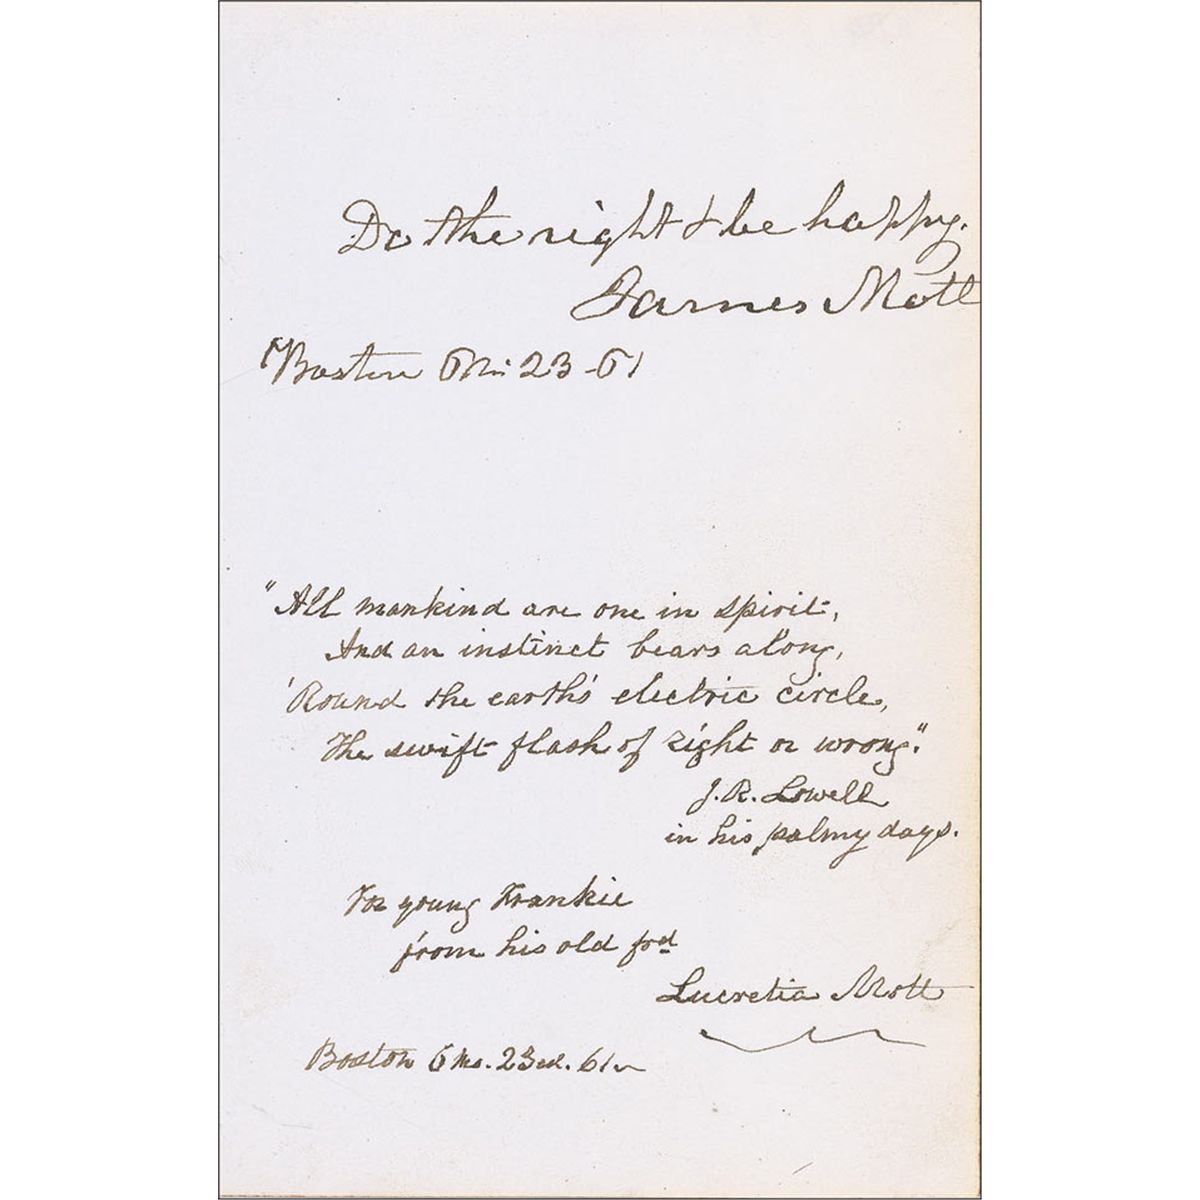 Do the right & be happy.
James Mott
Boston 6 Mo 23 - 61
"All mankind are one in spirit,
And an instinct bears along,
'Round the earth's electric circle,
The swift flash of right or wrong."
J. R. Lowell
in his palmy days.
For young Frankie
from his old frd
Lucretia Mott
Boston 6 Mo. 23rd. 61